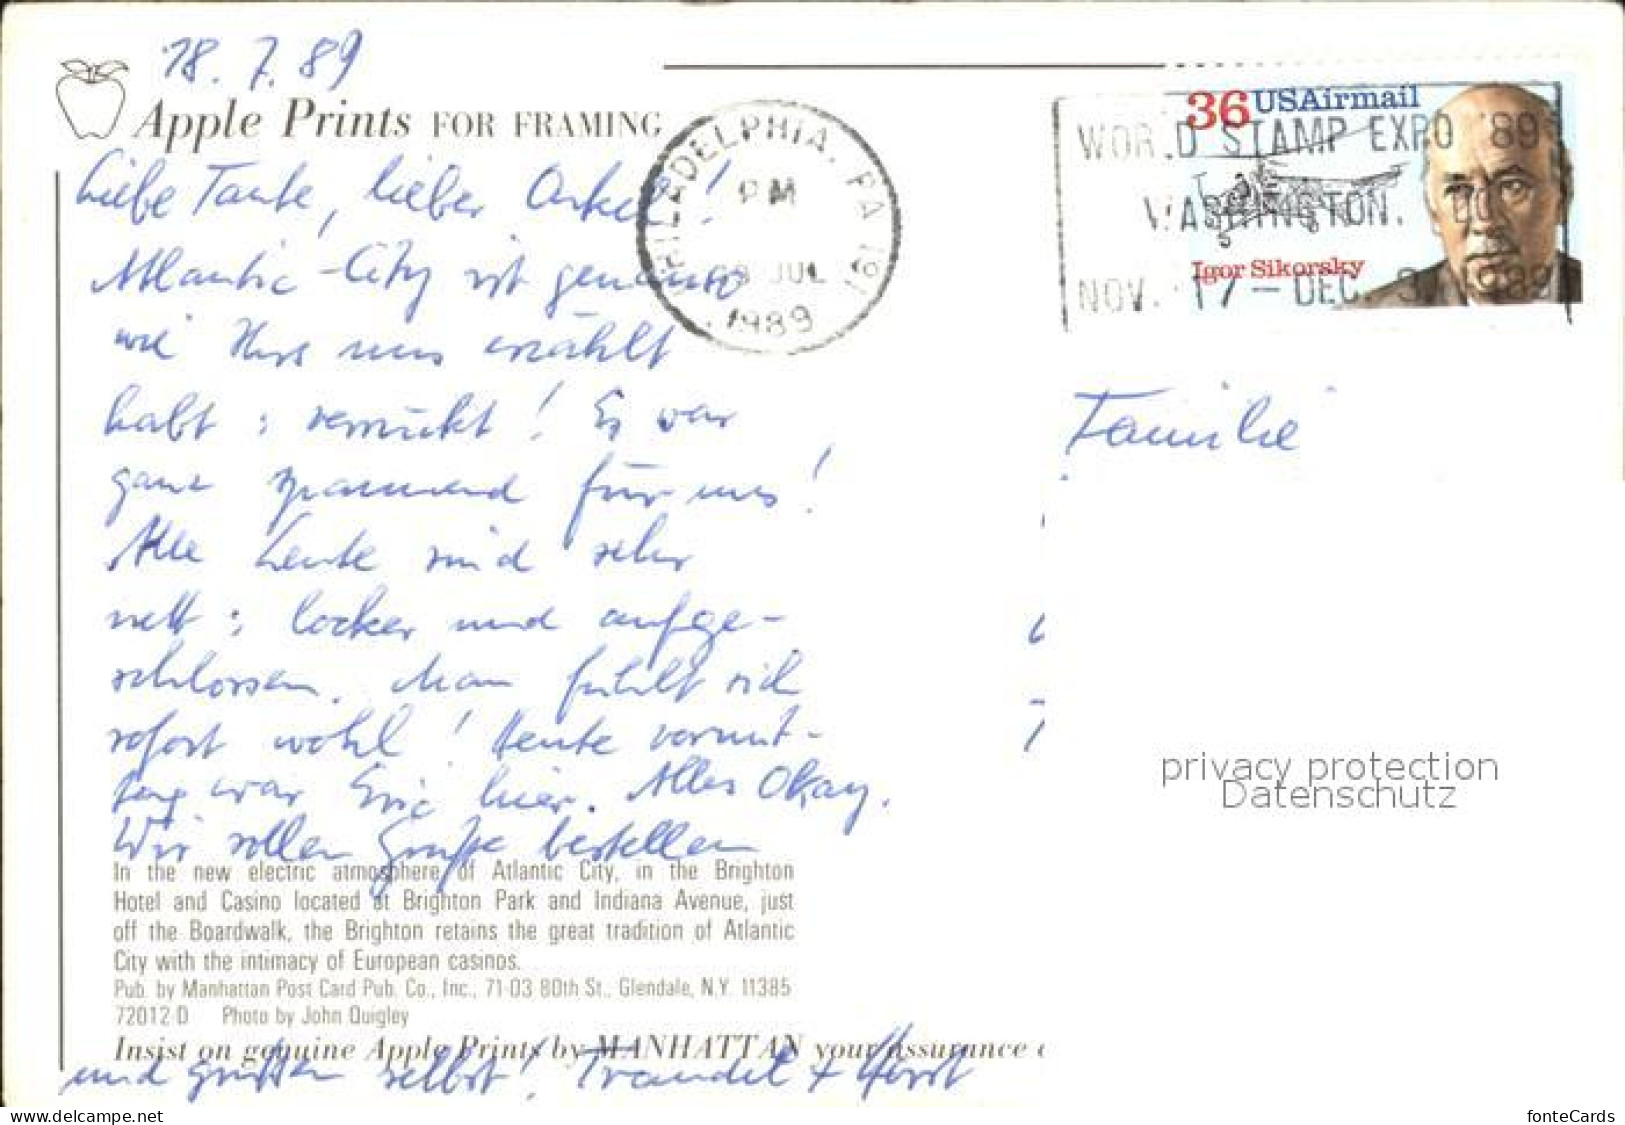 18. 7. 89
Apple Prints FOR FRAMING
Liebe Tante, lieber Onkel!
Atlantic-City ist genauso
wie Ihr es uns erzählt
habt: verrückt! Es war
ganz spannend für uns!
Alle Leute sind sehr
nett: locker und aufge-
schlossen. Man fühlt sich
sofort wohl! Heute vormit-
tag war Eric hier. Alles Okay.
Wir sollen Grüße bestellen
In the new electric atmosphere of Atlantic City, in the Brighton
Hotel and Casino located at Brighton Park and Indiana Avenue, just
off the Boardwalk, the Brighton retains the great tradition of Atlantic
City with the intimacy of European casinos.
Pub. by Manhattan Post Card Pub. Co., Inc., 71-03 80th St., Glendale, N.Y. 11385
72012-D Photo by John Quigley
Insist on genuine Apple Prints by MANHATTAN your assurance
und grüßen selbst! Traudel + Horst
PHILADELPHIA, PA 191
PM
JUL
1989
36 USAirmail
Igor Sikorsky
WORLD STAMP EXPO '89
WASHINGTON, DC
NOV. 17 - DEC. 3, 1989
Familie
privacy protection
Datenschutz
www.delcampe.net
fonteCards